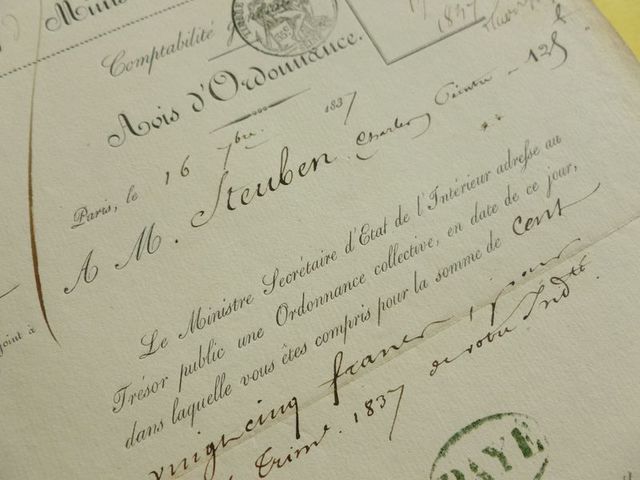 Comptabilité
1837
Avis d'Ordonnance.
Paris, le 16 7bre 1837
A M. Steuben Charles Peintre 125 f
Le Ministre Secrétaire d'Etat de l'Intérieur adresse au
Trésor public une Ordonnance collective, en date de ce jour,
dans laquelle vous êtes compris pour la somme de cent
vingt cinq francs, pour
Trime. 1837 de votre Indté.
joint à
PAYÉ